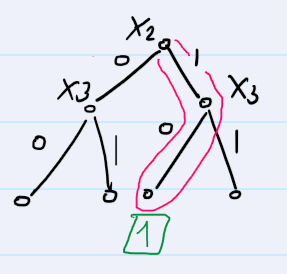 X2
0 1
X3 X3
0 1 0 1
1